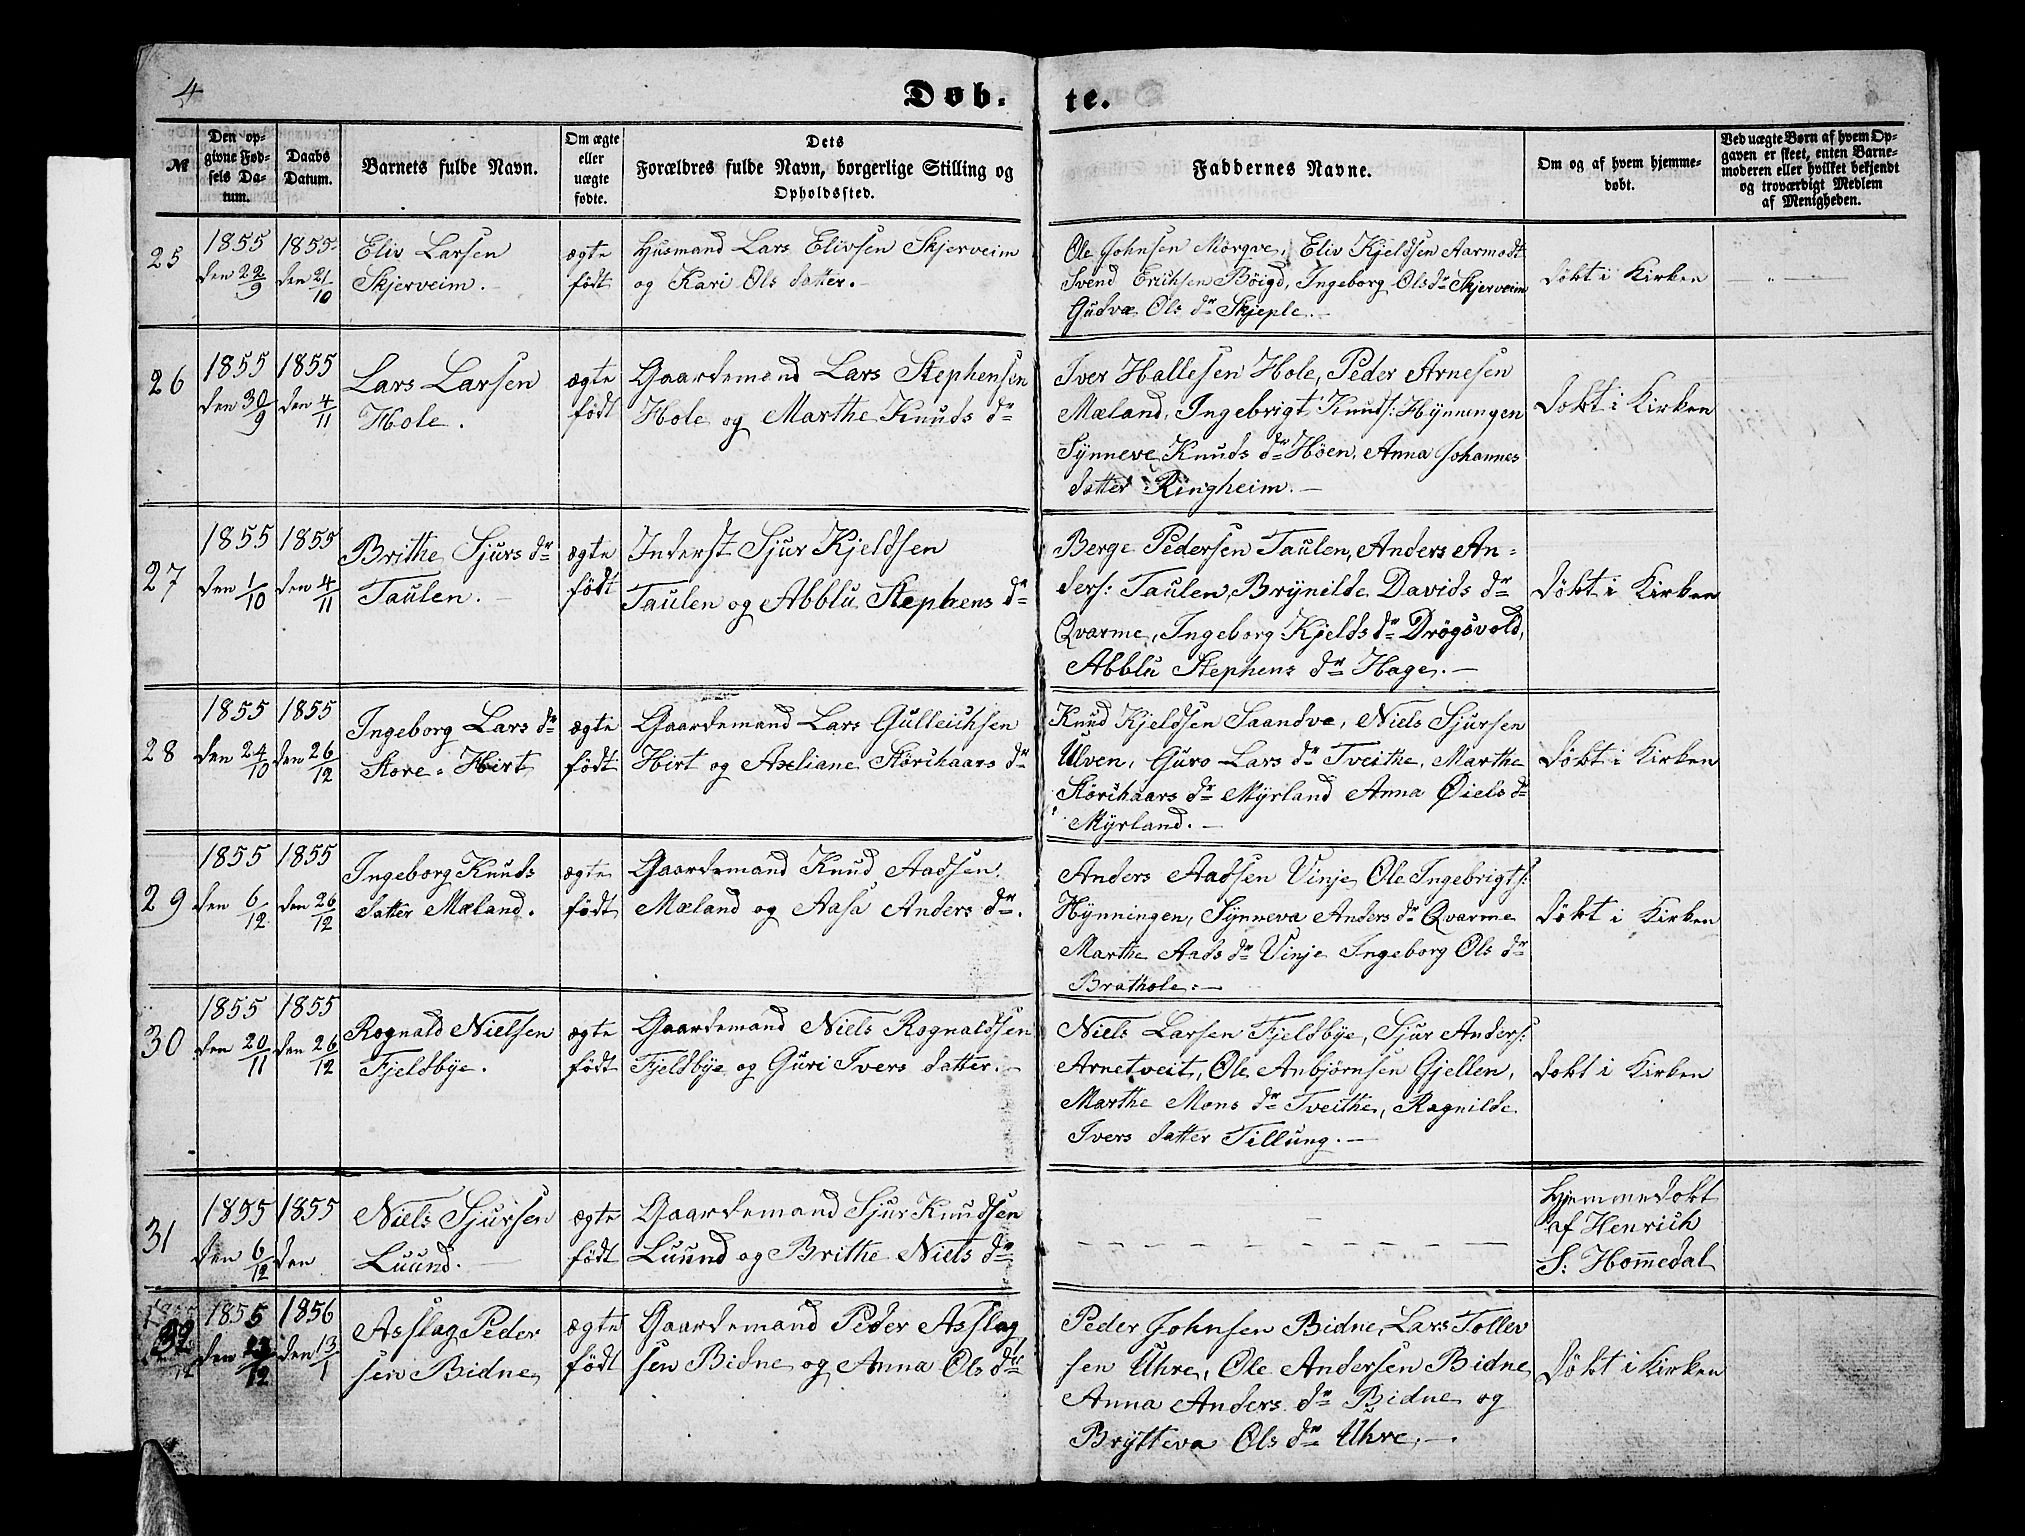 4
Døb-
te.
№
Den op-
givne Fød-
sels Da-
tum.
Daabs
Datum.
Barnets fulde Navn.
Om ægte
eller
uægte
fødte.
Dets
Forældres fulde Navn, borgerlige Stilling og
Opholdssted.
Faddernes Navne.
Om og af hvem hjemme-
døbt.
Ved uægte Børn af hvem Op-
gaven er skeet, enten Barne-
moderen eller hvilket bekjendt
og troværdigt Medlem
af Menigheden.
25
1855
den 22/9
1855
den 21/10
Eliv Larsen
Skjerveim.
ægte
født
Husmand Lars Elivsen Skjerveim
og Kari Ols datter.
Ole Johnsen Mørqve, Eliv Kjeldsen Aarmodt
Svend Erichsen Bøigd, Ingeborg Ols dr Skjerveim
Gudvæ Ols dr Skjeple.
døbt i Kirken
26
1855
den 30/9
1855
den 4/11
Lars Larsen
Hole.
ægte
født
Gaardemand Lars Stephensen
Hole og Marthe Knuds dr
Iver Hallesen Hole, Peder Arnesen
Mæland, Ingebrigt Knuds: Hynningen
Synneve Knuds dr Høen, Anna Johannes
datter Ringheim.
døbt i Kirken
27
1855
den 1/10
1855
den 4/11
Brithe Sjurs dr
Taulen.
ægte
født
Inderst Sjur Kjeldsen
Taulen og Abblu Stephens dr
Berge Pedersen Taulen, Anders An-
ders: Taulen, Brynilde Davids dr
Qvarme, Ingeborg Kjelds dr Drøgsvold,
Abblu Stephens dr Hage.
døbt i Kirken
28
1855
den 24/10
1855
den 26/12
Ingeborg Lars dr
Store-Hirt
ægte
født
Gaardemand Lars Gulleichsen
Hirt og Axeliane Storchaars dr
Knud Kjeldsen Saandvæ, Niels Sjursen
Ulven, Guro Lars dr Tveithe, Marthe
Storchaars dr Myrland Anna Øiels dr
Myrland.
døbt i Kirken
29
1855
den 6/12
1855
den 26/12
Ingeborg Knuds
datter Mæland.
ægte
født
Gaardemand Knud Aadsen
Mæland og Aasa Anders dr.
Anders Aadsen Vinje Ole Ingebrigts:
Hynningen, Synneva Anders dr Qvarme
Marthe Aads dr Vinje Ingeborg Ols dr
Brathole.
døbt i Kirken
30
1855
den 20/11
1855
den 26/12
Rognald Nielsen
Fjeldbye.
ægte
født
Gaardemand Niels Rognaldsen
Fjeldbye og Guri Ivers datter.
Niels Larsen Fjeldbye, Sjur Anders:
Arnetveit, Ole Anbjørnsen Gjellen,
Marthe Mons dr Tveithe, Ragnilde
Ivers datter Tillung.
døbt i Kirken
31
1855
den 6/12
1855
den
Niels Sjursen
Luund.
ægte
født
Gaardemand Sjur Knudsen
Luund og Brithe Niels dr
Hjemmedøbt
af Henrich
S: Hommedal
32
1855
den 23/12
1856
den 13/1
Asslag Peder
sen Bidne
ægte
født
Gaardemand Peder Asslag
sen Bidne og Anna Ols dr
Peder Johnsen Bidne, Lars Tollev
sen Uhre, Ole Andersen Bidne
Anna Anders dr Bidne og
Brytteva Ols dr Uhre.
døbt i Kirken